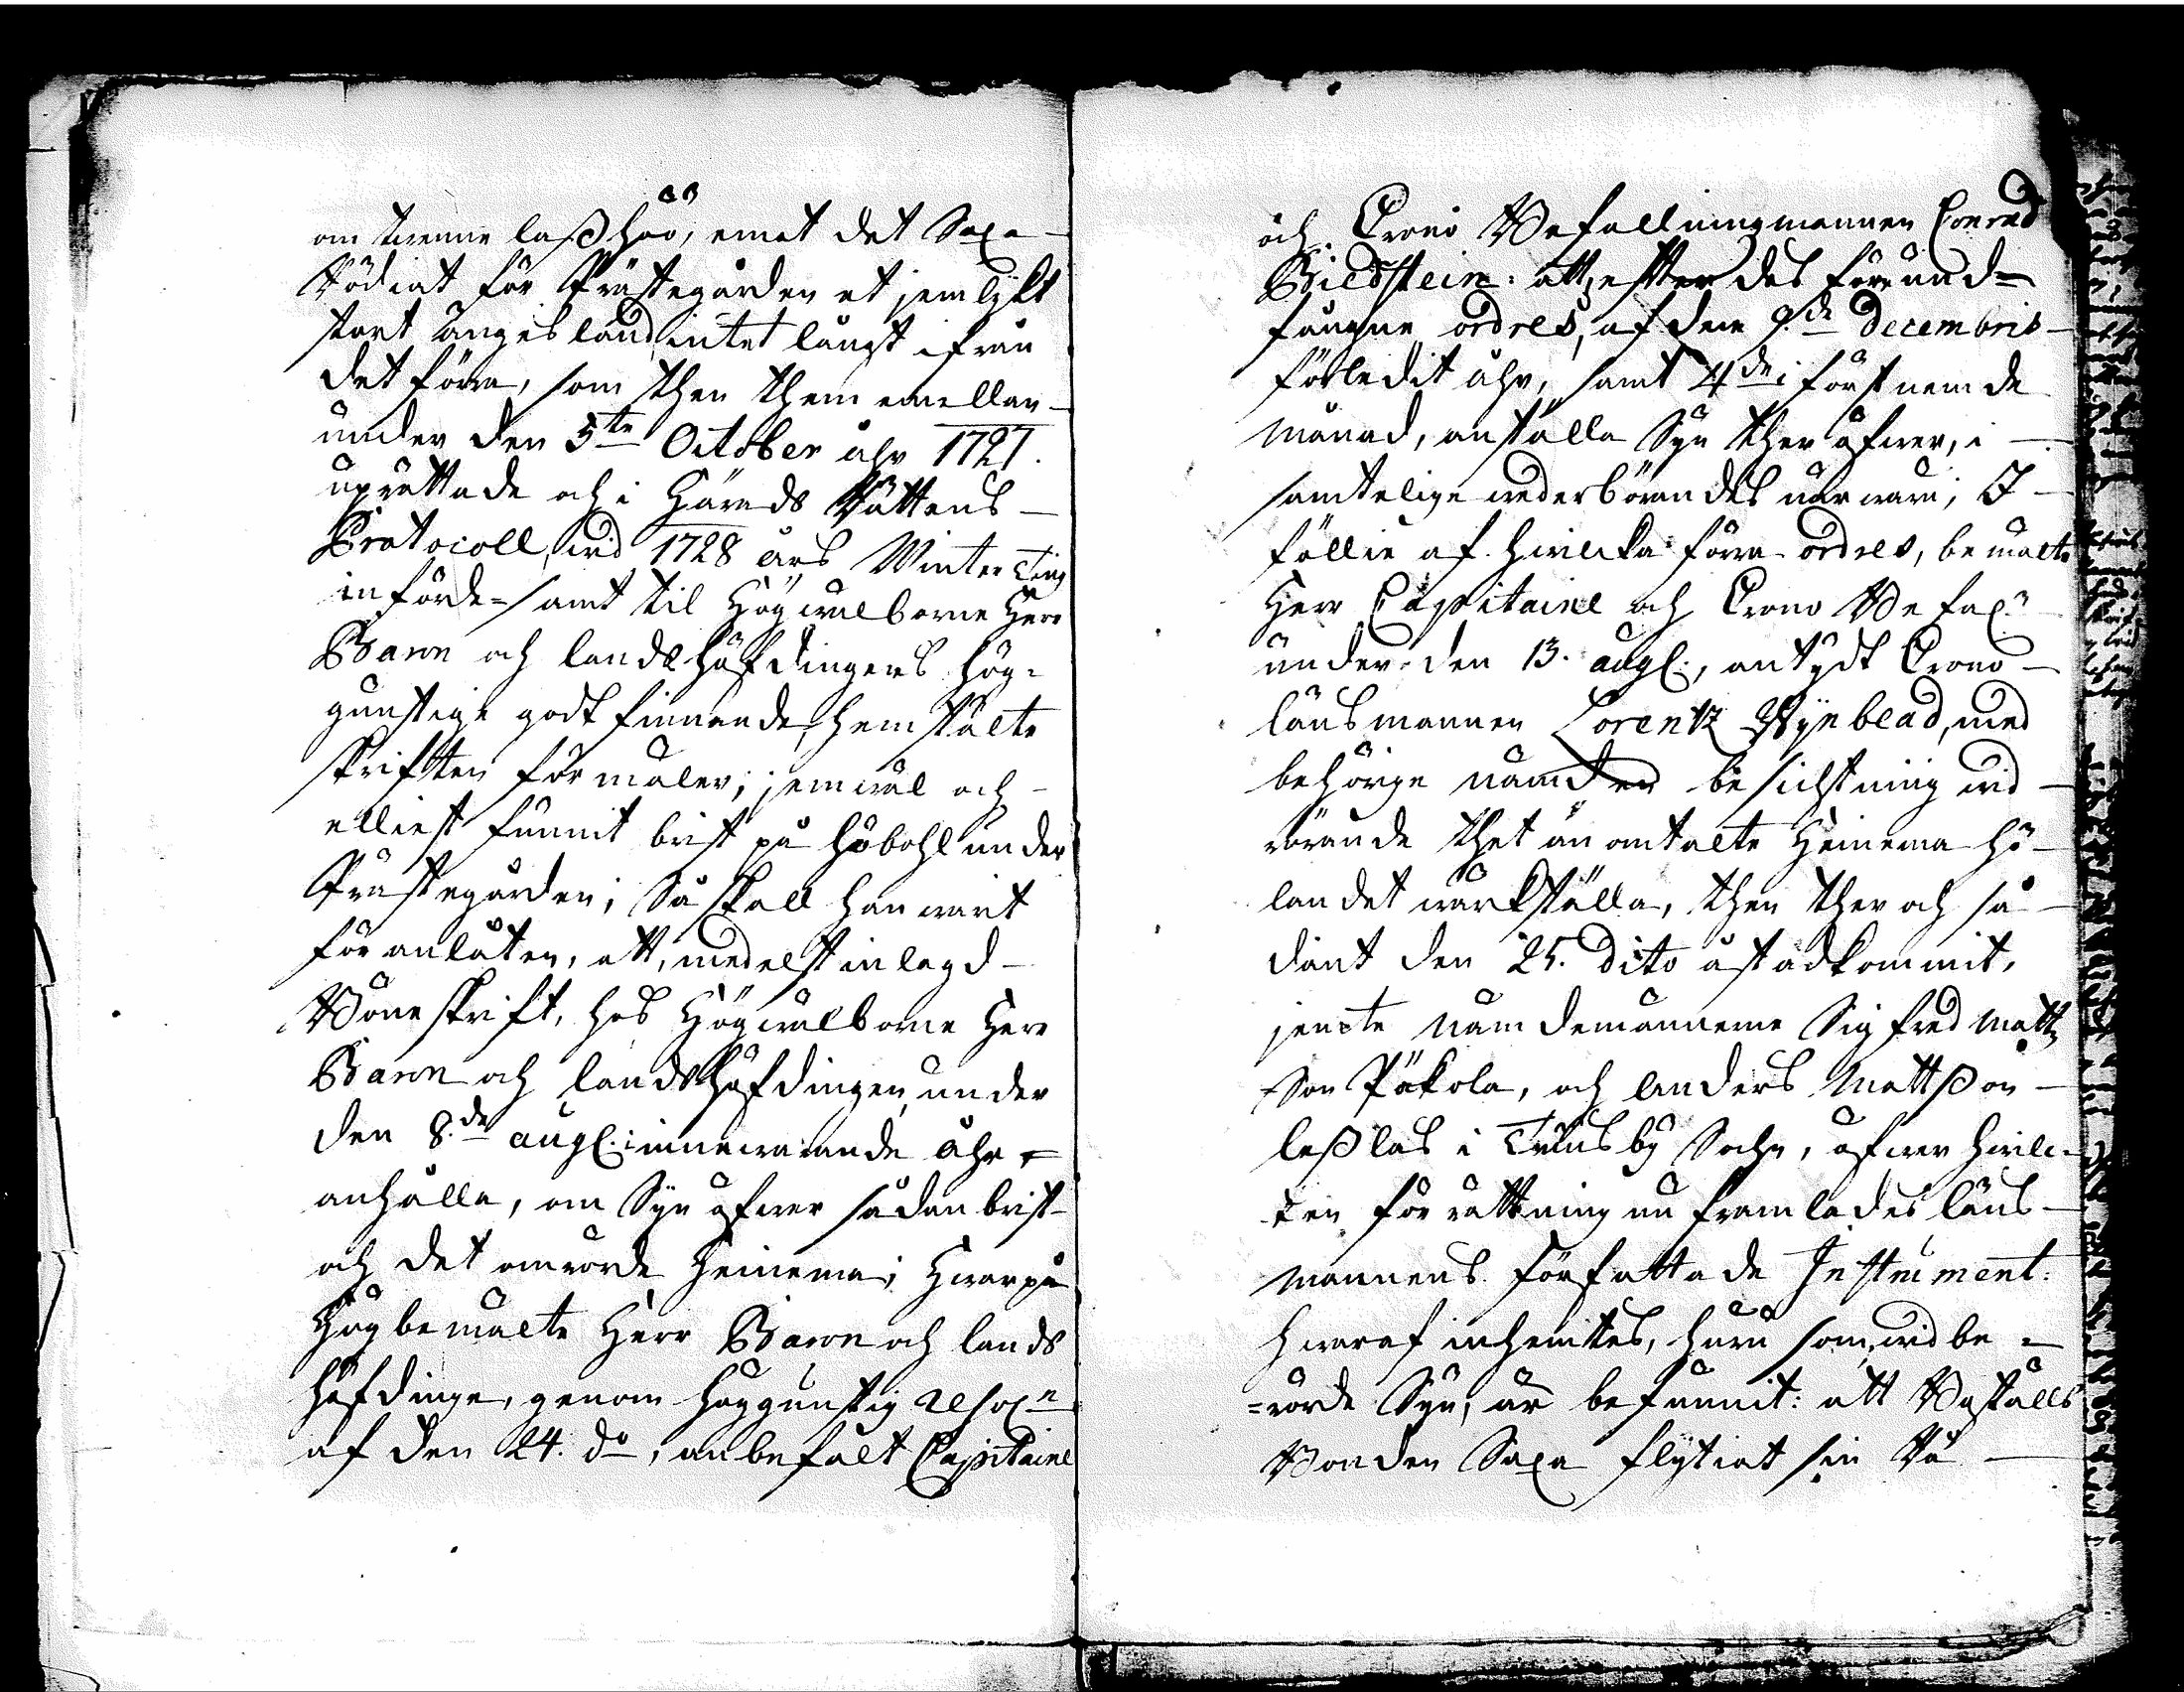 om twenne lass höö, emot det Saxa
Rödiat för Prästegården et jemlikt
stort änges land, intet långt ifrån
det förra, som then them emellan
under den 5te October åhr 1727.
uprättade och i Härads Rättens
Protocoll, wid 1728 års Winter Ting
införde- samt til Högwälborne Herr
Baron och Landshöfdingens hög-
gunstige godtfinnande, hemstälte
skriften förmäler; jemwäl och
elliest funnit brist på höbohl under
Prästegården; Så skall han warit
föranlåten, att, medelst inlagd
Böneskrift, hos Högwälborne Herr
Baron och Landshöfdingen, under
den 8de aug: innewarande åhr
anhålla, om Syn öfwer sådan brist
och det omrörde Heinema; Hwarpå
Högbemälte Herr Baron och Lands
höfdinge, genom höggunstig resol:n
af den 24. do, anbefalt Capitaine
och Crono Befallningsmannen Conrad
Biedstein: att, efter des förr und-
fångne ordres, af den 9de decembris
förledit åhr, samt 4de i förstnemde
månad, anställa Syn ther öfwer, i
samtelige wederbörandes närwaru; I
föllie af hwilcka förra ordres, bemälte
Herr Capitaine och Crono Befal:
under den 13. aug:, antydt Crono
länsmannen Lorentz Nyblad, med
behörige nämden besichtning wid
rörande thet än omtalte Heinema hö-
landet wärkställa, then ther och så
dant den 25. dito åstadkommit,
jemte nämdemännerne Sigfred Matts
son Päkola, och Anders Mattsson
Lasslas i Tuusby Sochn, öfwer hwilc-
ken förrättning nu framlades läns
mannens författade Instrument:
hwaraf inhemtes, huru som, wid be-
-rörde Syn, är befunnit: att Boställs
Bonden Saxa flytiat sin Rå